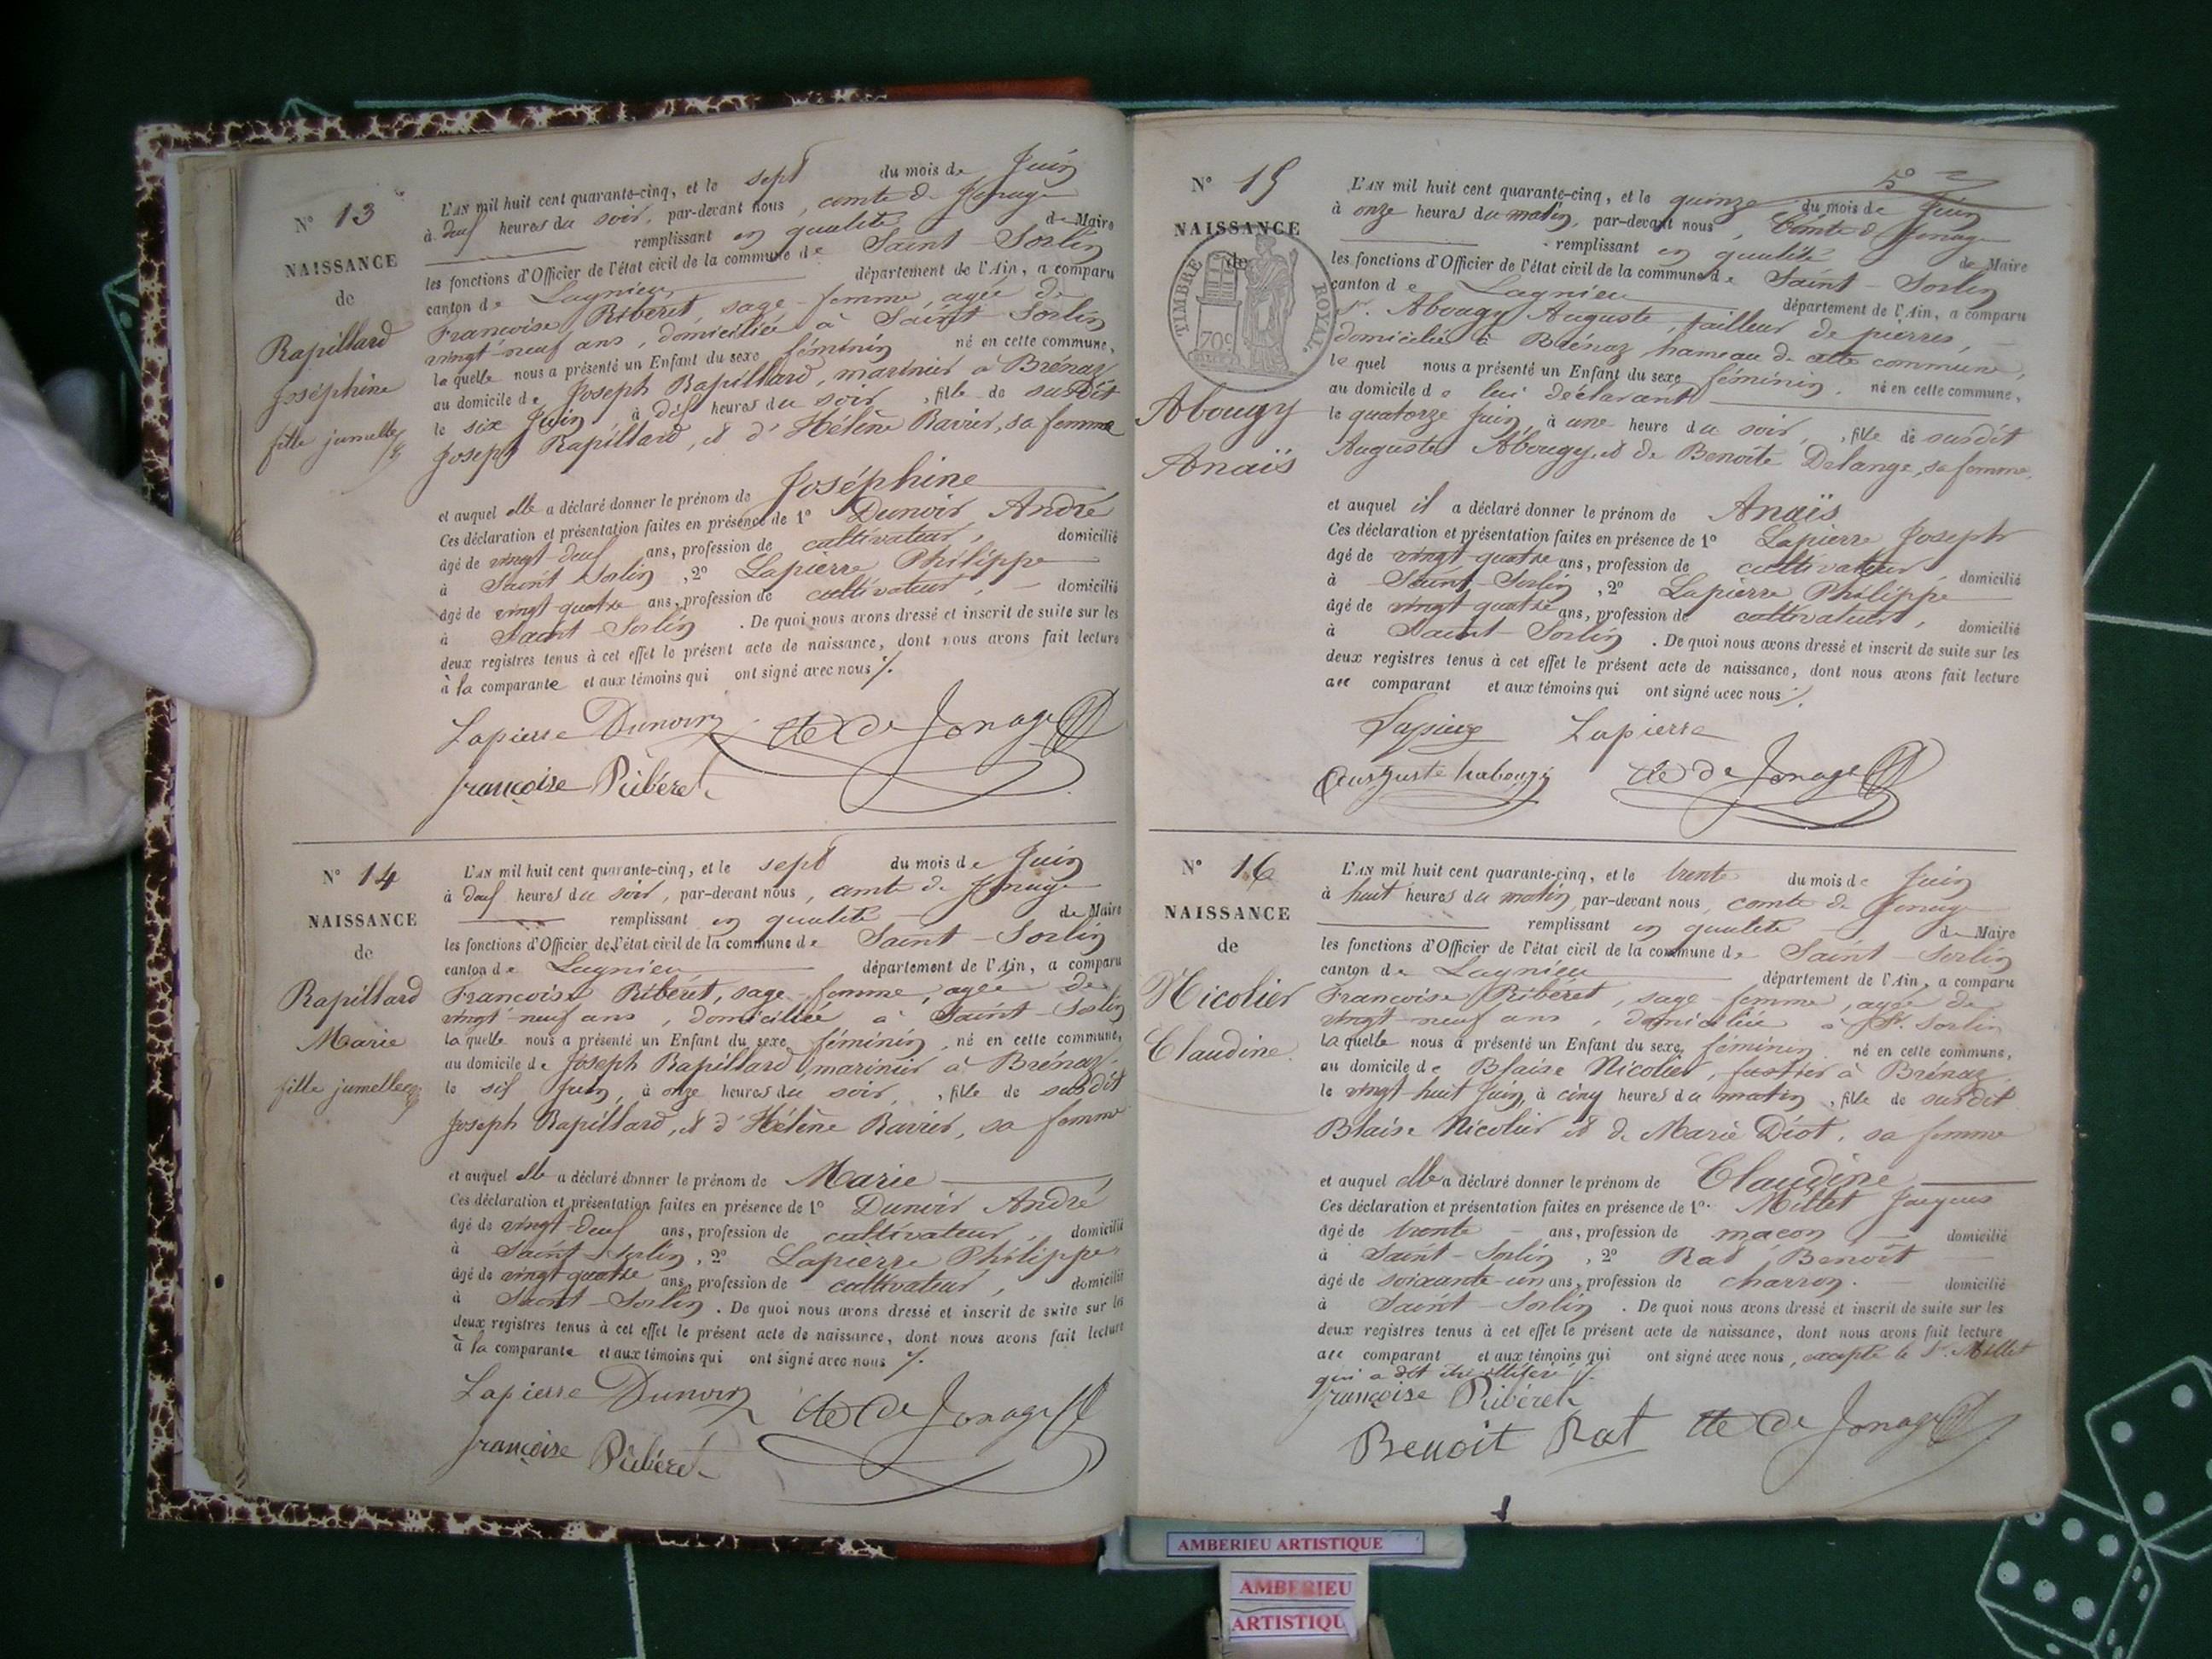 N° 13
NAISSANCE
de
Rapillard
Joséphine
fille jumelle
L'AN mil huit cent quarante-cinq, et le sept du mois de Juin
à deux heures du soir, par-devant nous, comte de Jonage
remplissant en qualité de Maire
les fonctions d'Officier de l'état civil de la commune de Saint-Sorlin
canton de Lagnieu, département de l'Ain, a comparu
Françoise Ribéret, sage-femme, agée de
vingt-neuf ans, domiciliée à Saint-Sorlin
laquelle nous a présenté un Enfant du sexe féminin né en cette commune,
au domicile de Joseph Rapillard, marinier à Brénaz
le six Juin, à dix heures du soir, fille de susdit
Joseph Rapillard, et d'Hélène Ravier, sa femme
et auquel elle a déclaré donner le prénom de Joséphine
Ces déclaration et présentation faites en présence de 1° Dunoir André
âgé de vingt-deux ans, profession de cultivateur, domicilié
à Saint-Sorlin, 2° Lapierre Philippe
âgé de vingt-quatre ans, profession de cultivateur, domicilié
à Saint-Sorlin. De quoi nous avons dressé et inscrit de suite sur les
deux registres tenus à cet effet le présent acte de naissance, dont nous avons fait lecture
à la comparante et aux témoins qui ont signé avec nous
Lapierre Dunoir Cte de Jonage
françoise Ribéret
N° 14
NAISSANCE
de
Rapillard
Marie
fille jumelle
L'AN mil huit cent quarante-cinq, et le sept du mois de Juin
à deux heures du soir, par-devant nous, comte de Jonage
remplissant en qualité de Maire
les fonctions d'Officier de l'état civil de la commune de Saint-Sorlin
canton de Lagnieu département de l'Ain, a comparu
Françoise Ribéret, sage-femme, agée de
vingt-neuf ans, domiciliée à Saint-Sorlin
laquelle nous a présenté un Enfant du sexe féminin, né en cette commune,
au domicile de Joseph Rapillard, marinier à Brénaz,
le six Juin, à onze heures du soir, fille de susdit
Joseph Rapillard, et d'Hélène Ravier, sa femme
et auquel elle a déclaré donner le prénom de Marie
Ces déclaration et présentation faites en présence de 1° Dunoir André
âgé de vingt-deux ans, profession de cultivateur, domicilié
à Saint-Sorlin, 2° Lapierre Philippe
âgé de vingt-quatre ans, profession de cultivateur, domicilié
à Saint-Sorlin. De quoi nous avons dressé et inscrit de suite sur les
deux registres tenus à cet effet le présent acte de naissance, dont nous avons fait lecture
à la comparante et aux témoins qui ont signé avec nous
Lapierre Dunoir Cte de Jonage
françoise Ribéret
N° 15
NAISSANCE
de
TIMBRE ROYAL.
70c
Abougy
Anaïs
L'AN mil huit cent quarante-cinq, et le quinze du mois de Juin
à onze heures du matin, par-devant nous, Comte de Jonage
remplissant en qualité de Maire
les fonctions d'Officier de l'état civil de la commune de Saint-Sorlin
canton de Lagnieu département de l'Ain, a comparu
Sr. Abougy Auguste, tailleur de pierres,
domicilié à Brénaz hameau de cette commune,
lequel nous a présenté un Enfant du sexe féminin, né en cette commune,
au domicile de lui déclarant
le quatorze Juin, à une heure du soir, fille de susdit
Auguste Abougy, et de Benoîte Delange, sa femme.
et auquel il a déclaré donner le prénom de Anaïs
Ces déclaration et présentation faites en présence de 1° Lapierre Joseph
âgé de vingt-quatre ans, profession de cultivateur, domicilié
à Saint-Sorlin, 2° Lapierre Philippe
âgé de vingt-quatre ans, profession de cultivateur, domicilié
à Saint-Sorlin. De quoi nous avons dressé et inscrit de suite sur les
deux registres tenus à cet effet le présent acte de naissance, dont nous avons fait lecture
au comparant et aux témoins qui ont signé avec nous
Lapierre Lapierre
Cte de Jonage
N° 16
NAISSANCE
de
Nicolier
Claudine.
L'AN mil huit cent quarante-cinq, et le trente du mois de Juin
à huit heures du matin, par-devant nous, comte de Jonage
remplissant en qualité de Maire
les fonctions d'Officier de l'état civil de la commune de Saint-Sorlin
canton de Lagnieu département de l'Ain, a comparu
Françoise Ribéret, sage-femme, agée de
vingt-neuf ans, domiciliée à St. Sorlin
laquelle nous a présenté un Enfant du sexe féminin né en cette commune,
au domicile de Blaise Nicolier, à Brénaz,
le vingt-huit Juin, à cinq heures du matin, fille de susdit
Blaise Nicolier et de Marie Diot, sa femme
et auquel elle a déclaré donner le prénom de Claudine
Ces déclaration et présentation faites en présence de 1°. Millet Jacques
âgé de trente ans, profession de maçon domicilié
à Saint-Sorlin, 2° Rat Benoît
âgé de soixante-un ans, profession de charron. domicilié
à Saint-Sorlin. De quoi nous avons dressé et inscrit de suite sur les
deux registres tenus à cet effet le présent acte de naissance, dont nous avons fait lecture
au comparant et aux témoins qui ont signé avec nous, excepté le Sr. Millet
qui a dit être illitéré
françoise Ribéret
Benoit Rat Cte de Jonage
AMBERIEU ARTISTIQUE
AMBERIEU
ARTISTIQU